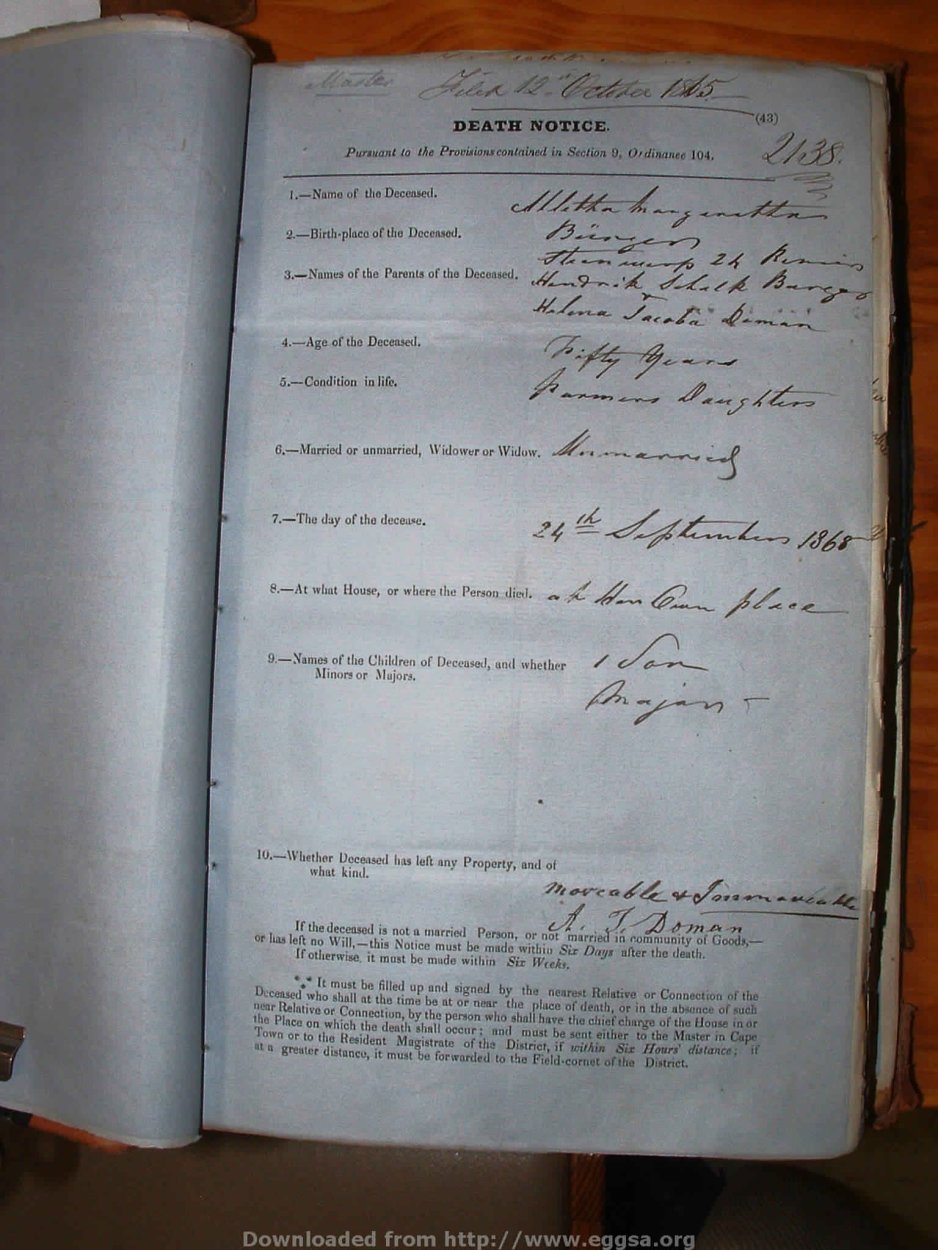 Master Filed 12th October 1865
(43)
DEATH NOTICE.
Pursuant to the Provisions contained in Section 9, Ordinance 104.
2138.
1.—Name of the Deceased. Alletha Margaretha
Burger
2.—Birth-place of the Deceased.
3.—Names of the Parents of the Deceased. Hendrik Schalk Burger
Helena Jacoba Doman
4.—Age of the Deceased. Fifty Years
5.—Condition in life. Farmers Daughters
6.—Married or unmarried, Widower or Widow. Unmarried
7.—The day of the decease. 24th September 1868
8.—At what House, or where the Person died. at Her Own place
9.—Names of the Children of Deceased, and whether 1 Son
Minors or Majors. Major -
10.—Whether Deceased has left any Property, and of
what kind. moveable & Immoveable
A. J. Doman
If the deceased is not a married Person, or not married in community of Goods,—
or has left no Will,—this Notice must be made within Six Days after the death.
If otherwise, it must be made within Six Weeks.
*** It must be filled up and signed by the nearest Relative or Connection of the
Deceased who shall at the time be at or near the place of death, or in the absence of such
near Relative or Connection, by the person who shall have the chief charge of the House in or
the Place on which the death shall occur; and must be sent either to the Master in Cape
Town or to the Resident Magistrate of the District, if within Six Hours' distance; if
at a greater distance, it must be forwarded to the Field-cornet of the District.
Downloaded from http://www.eggsa.org